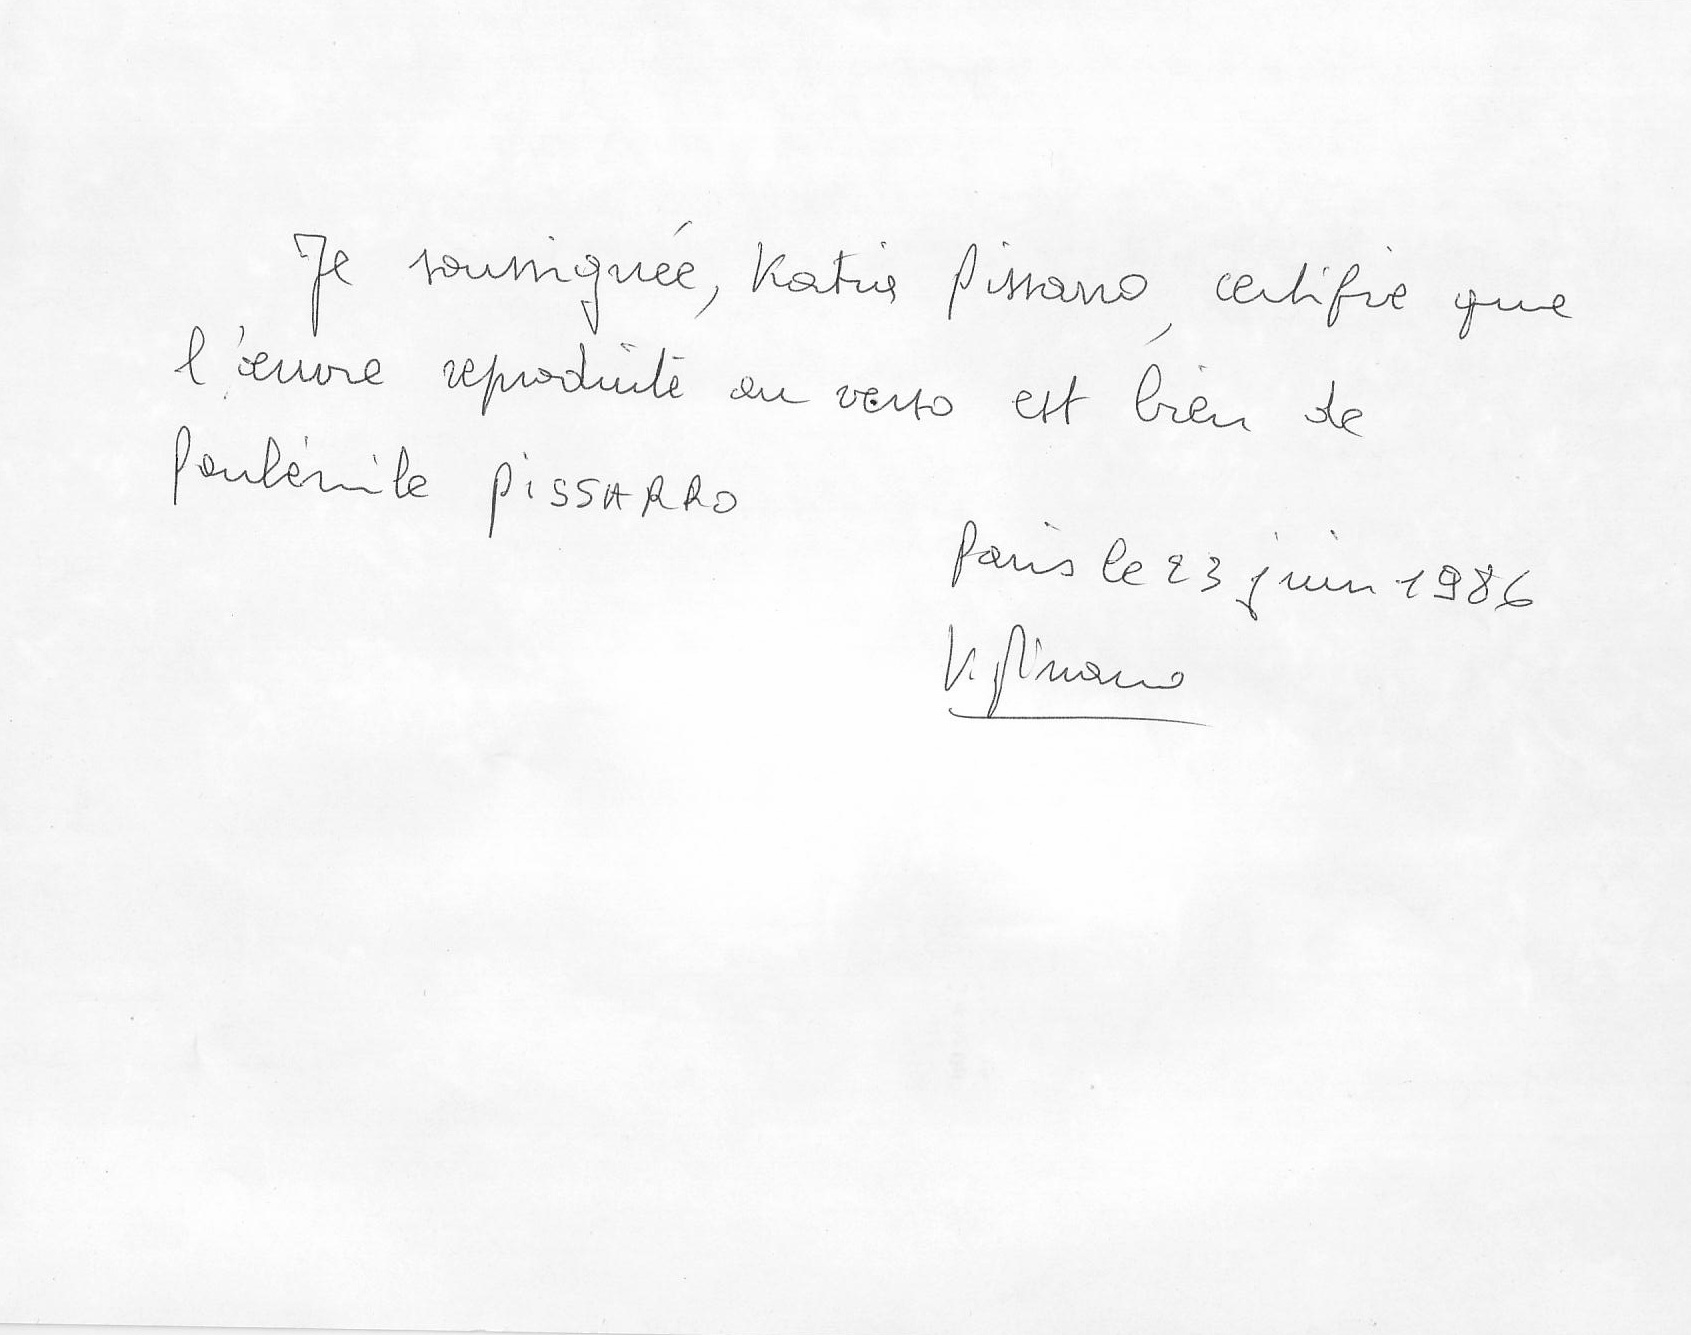 Je soussignée, Katia Pissarro, certifie que
l'œuvre reproduite au verso est bien de
Paulémile PISSARRO
Paris le 23 juin 1986
K. Pissarro